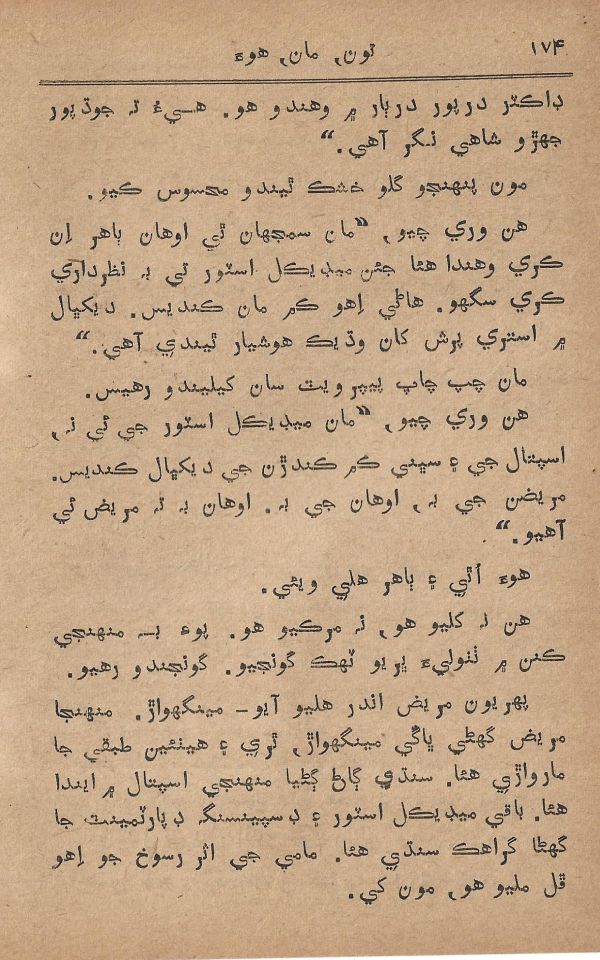 ۱۷۴
تون، مان، هوءَ
ڊاڪٽر درپور دربار ۾ وهندو هو. هيءُ تہ جوڌپور
جهڙو شاهي نگر آهي.“
مون پنهنجو گلو خشڪ ٿيندو محسوس ڪيو.
هن وري چيو، ”مان سمجهان ٿي اوهان ٻاهر اِن
ڪري وهندا هئا جيئن ميڊيڪل اسٽور تي بہ نظرداري
ڪري سگهو. هاڻي اِهو ڪم مان ڪنديس. ديکڀال
۾ استري پرش کان وڌيڪ هوشيار ٿيندي آهي.“
مان چپ چاپ پيپرويٽ سان کيليندو رهيس.
هن وري چيو، ”مان ميڊيڪل اسٽور جي ئي نہ،
اسپتال جي ۽ سڀني ڪم ڪندڙن جي ديکڀال ڪنديس.
مريضن جي بہ، اوهان جي بہ. اوهان بہ تہ مريض ئي
آهيو.“
هوءَ اُٿي ۽ ٻاهر هلي ويئي.
هن نہ کليو هو، نہ مرڪيو هو. پوءِ بہ منهنجي
ڪنن ۾ ٺٺوليءَ ڀريو ٽهڪ گونجيو. گونجندو رهيو.
پهريون مريض اندر هليو آيو – مينگهواڙ. منهنجا
مريض گهڻي ڀاڱي مينگهواڙ، ٿري ۽ هيٺئين طبقي جا
مارواڙي هئا. سنڌي ڳاڻ ڳڻيا منهنجي اسپتال ۾ ايندا
هئا. باقي ميڊيڪل اسٽور ۽ ڊسپينسنگ ڊپارٽمينٽ جا
گهڻا گراهڪ سنڌي هئا. مامي جي اثر رسوخ جو اِهو
ڦل مليو هو، مون کي.